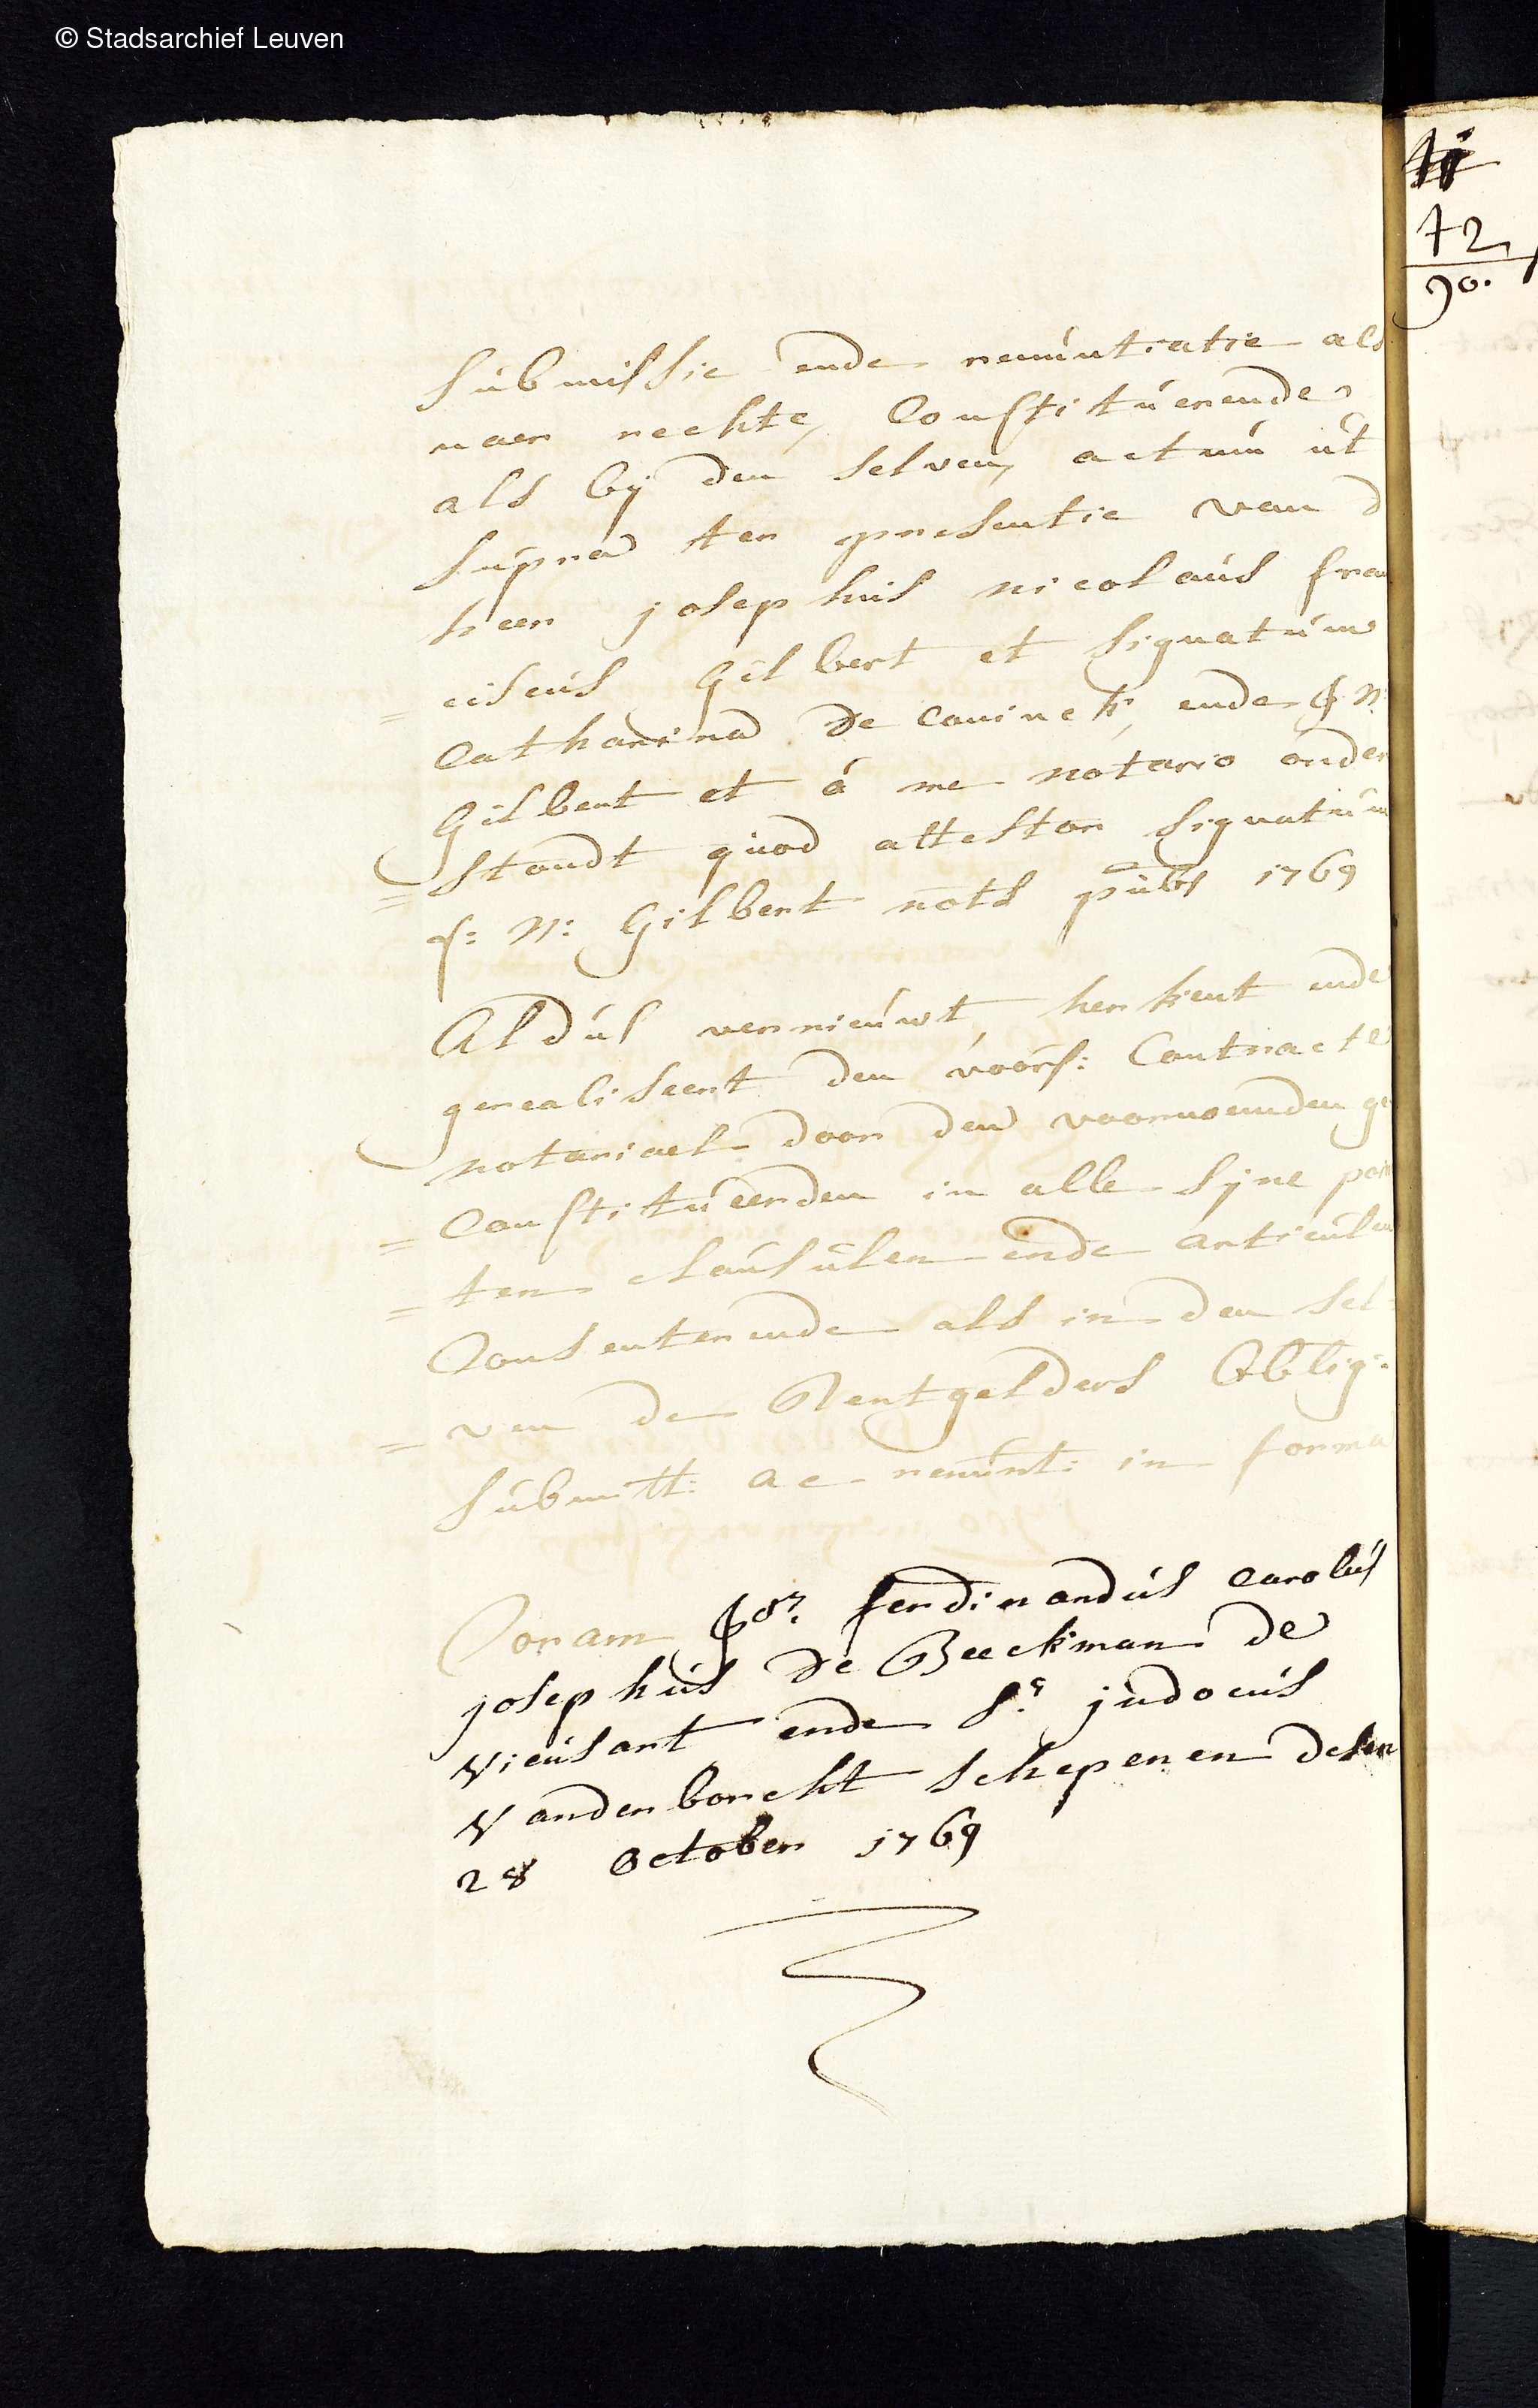 © Stadsarchief Leuven
submissie ende renuntiatie als
naer rechte, Constituerende
als bÿ den selven, actum ut
supra ter presentie van d
heer josephus nicolaus fran
= ciscus Gilbert et signatum
Catharina de Coninck, ende J: N:
Gilbert et á me notario onder
= standt quod attestor signatum
J: N: Gilbert nots pubs 1769
Aldus vernieuwt herkent ende
gerealiseert den voors: Contracte
notariael door den voornoemden ge
= Constitueerden in alle sÿne poin
= ten clausulen ende articulen
Consenterende als in den sel-
= ven de Rentgelders Oblig:
submitt: ac renunt: in forma
Coram Jor. ferdinandus Carolus
josephus De Beeckman de
Vieusart ende Sr. judocus
Vanderborcht schepenen desen
28 October 1769
72
90.